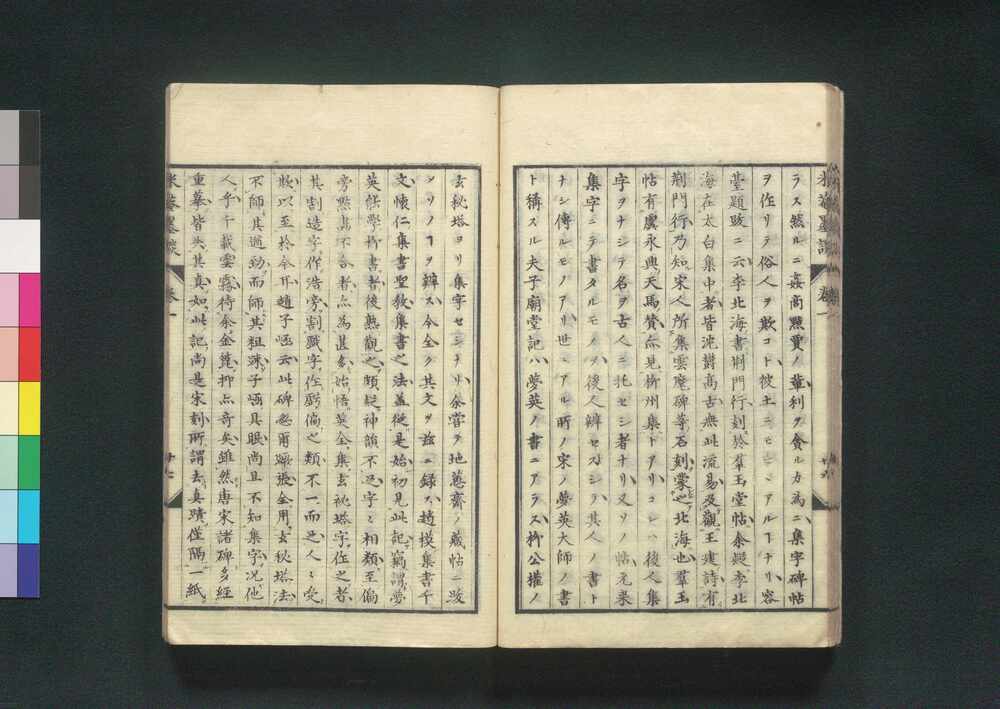 米菴墨談　卷一
ラス然ルニ姦商黠賈ノ輩利ヲ貪ルカ為ニ集字碑帖
ヲ作リテ俗人ヲ欺コト彼土ニモマヽアルヿナリ容
臺題跋ニ云李北海書荆門行刻於羣玉堂帖余疑李北
海在太白集中者皆沈欝高古無此流易及觀王建詩有
荆門行乃知宋人所集雲麾碑等石刻蒙之北海也羣玉
帖有虞永興天馬贊亦見柳州集トアリコレ後人集
字ヲナシテ名ヲ古人ニ托セシ者ナリ又ソノ帖元来
集字ニテ書タルモノヲ後人辨セスシテ其人ノ書ト
ナシ傳ルモノアリ世ニアル所ノ宋ノ夢英大師ノ書
ト稱スル夫子廟堂記ハ夢英ノ書ニアラス柳公權ノ
玄秘塔ヨリ集字セシナリ余嘗テ地蔵帖ニ跋
シソノヿヲ辨ス今全ク其文ヲ茲ニ録ス趙模集書千
文懷仁集書聖教集書之法蓋從是始初見此記竊謂夢
英能學柳書者後熟觀之頗疑神韻不足字々相類至偏
旁點畫不合者亦為甚多始悟英全集玄祕塔字作之者
其割造字作浩旁割虧字作虧偏之類不一而足人々受
欺以至於今耳趙子凾云此碑怒甭蹶張全用玄秘塔法
不師其遒勁而師其粗疎子凾具眼尚且不知集字况他
人乎千載雲霧待余金篦抑亦奇矣雖然唐宋諸碑多經
重摹皆失其真如此記尚是宋刻所謂去真蹟僅隔一紙
米菴墨談　卷一